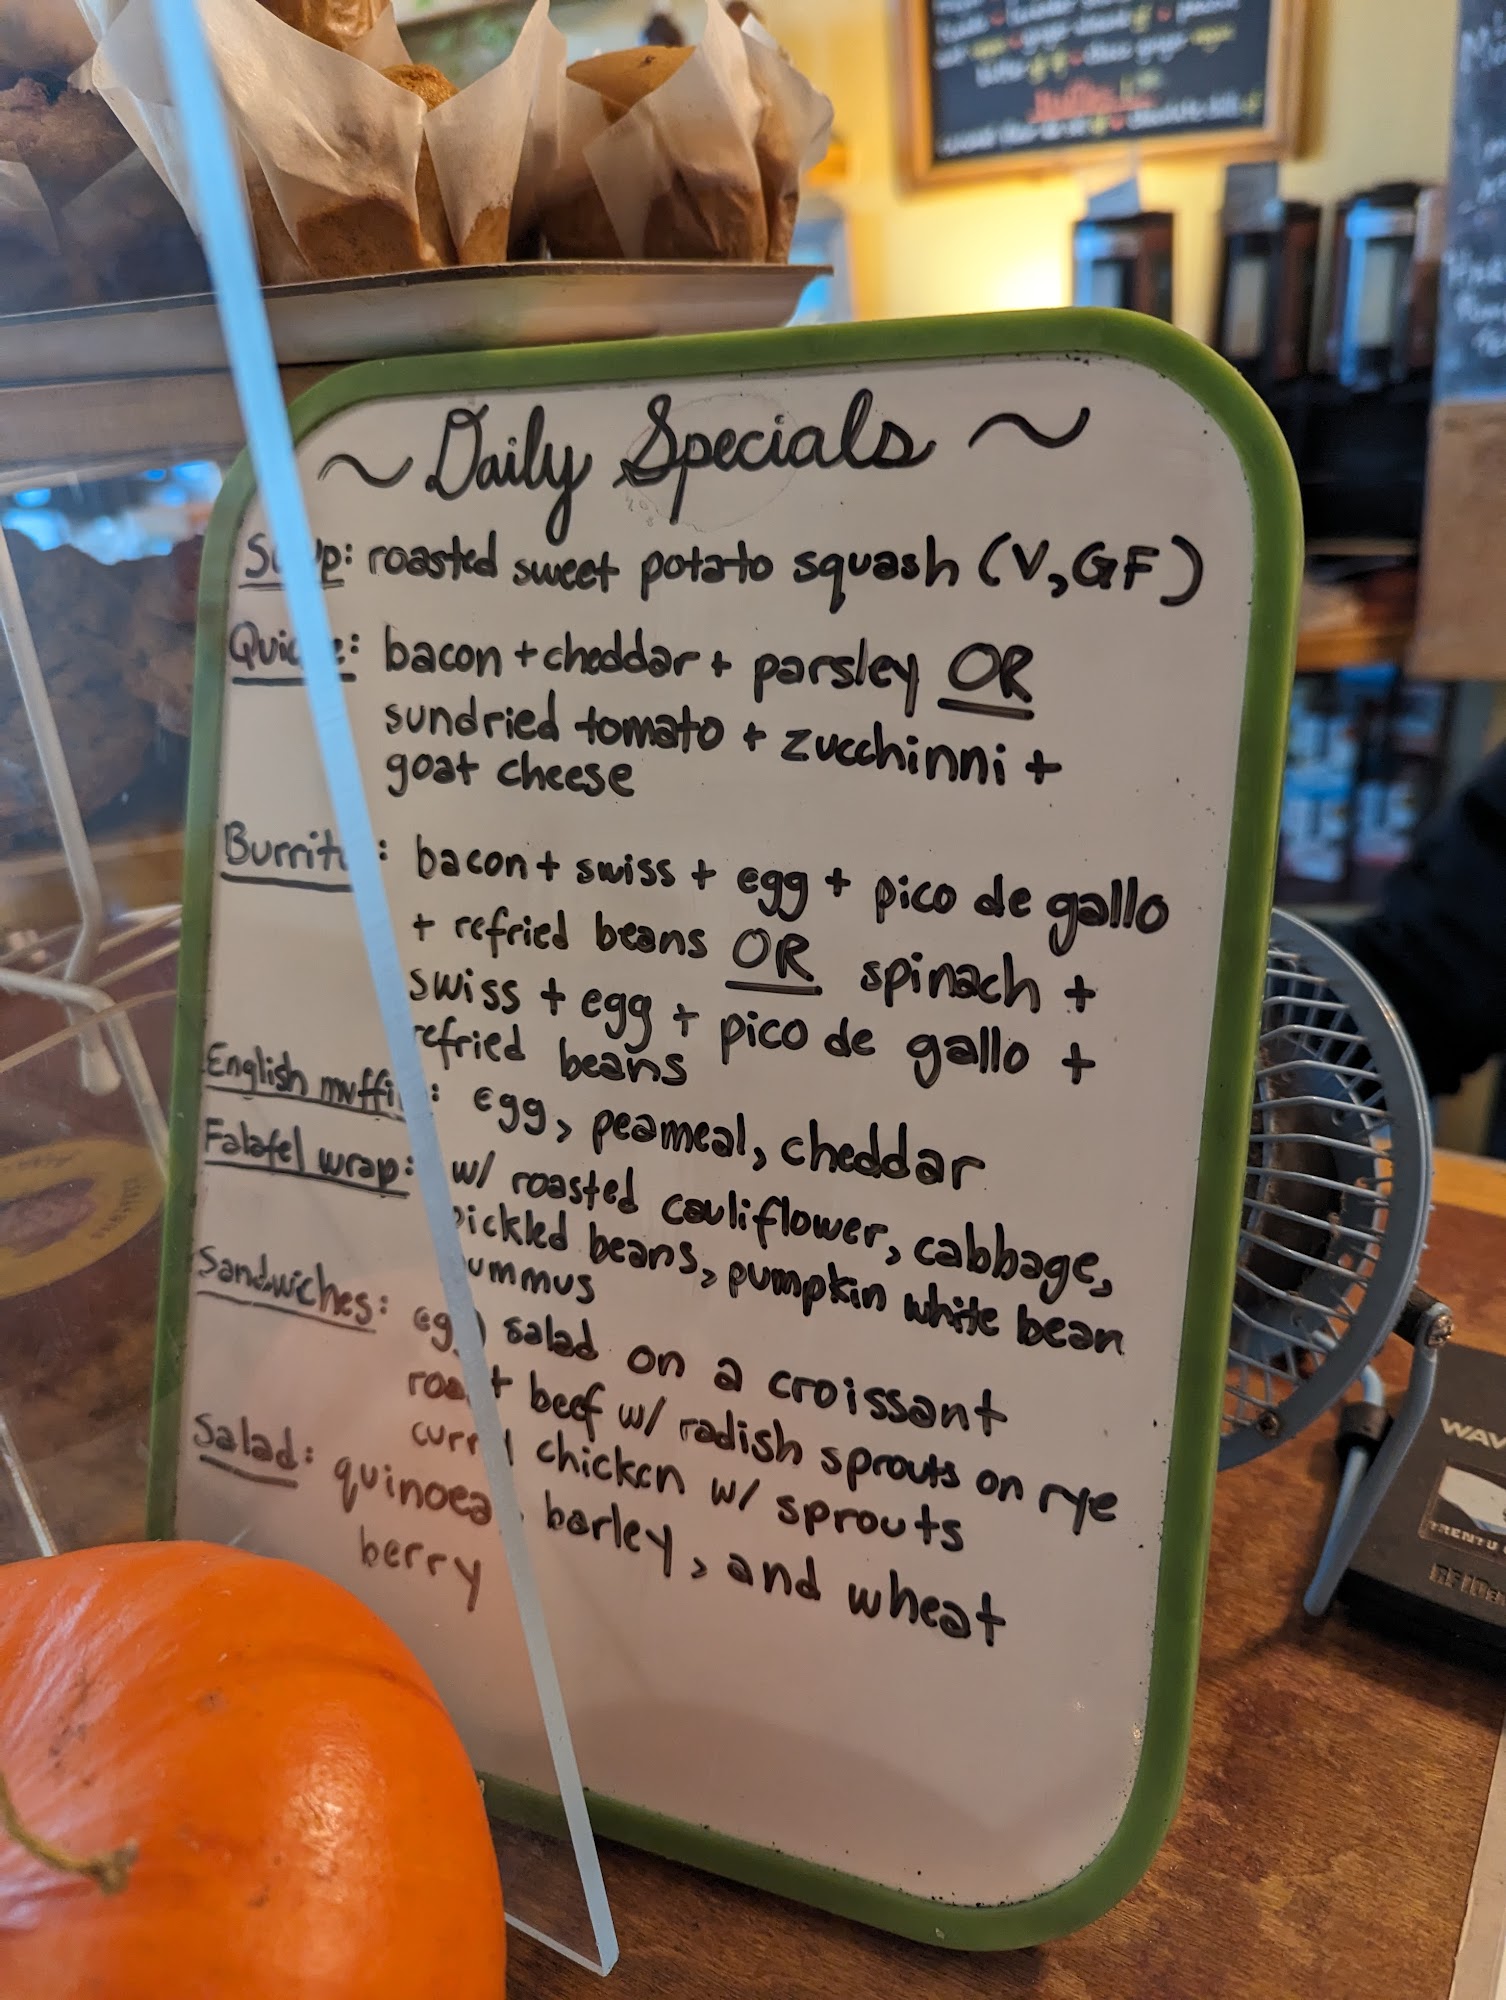 ~ Daily Specials ~
Soup: roasted sweet potato squash (V, GF)
Quiche: bacon + cheddar + parsley OR
sundried tomato + zucchinni +
goat cheese
Burrito: bacon + swiss + egg + pico de gallo
+ refried beans OR spinach +
swiss + egg + pico de gallo +
refried beans
English muffin: egg, peameal, cheddar
Falafel wrap: w/ roasted cauliflower, cabbage,
pickled beans, pumpkin white bean
hummus
Sandwiches: egg salad on a croissant
roast beef w/ radish sprouts on rye
curried chicken w/ sprouts
Salad: quinoea, barley, and wheat
berry
WAV